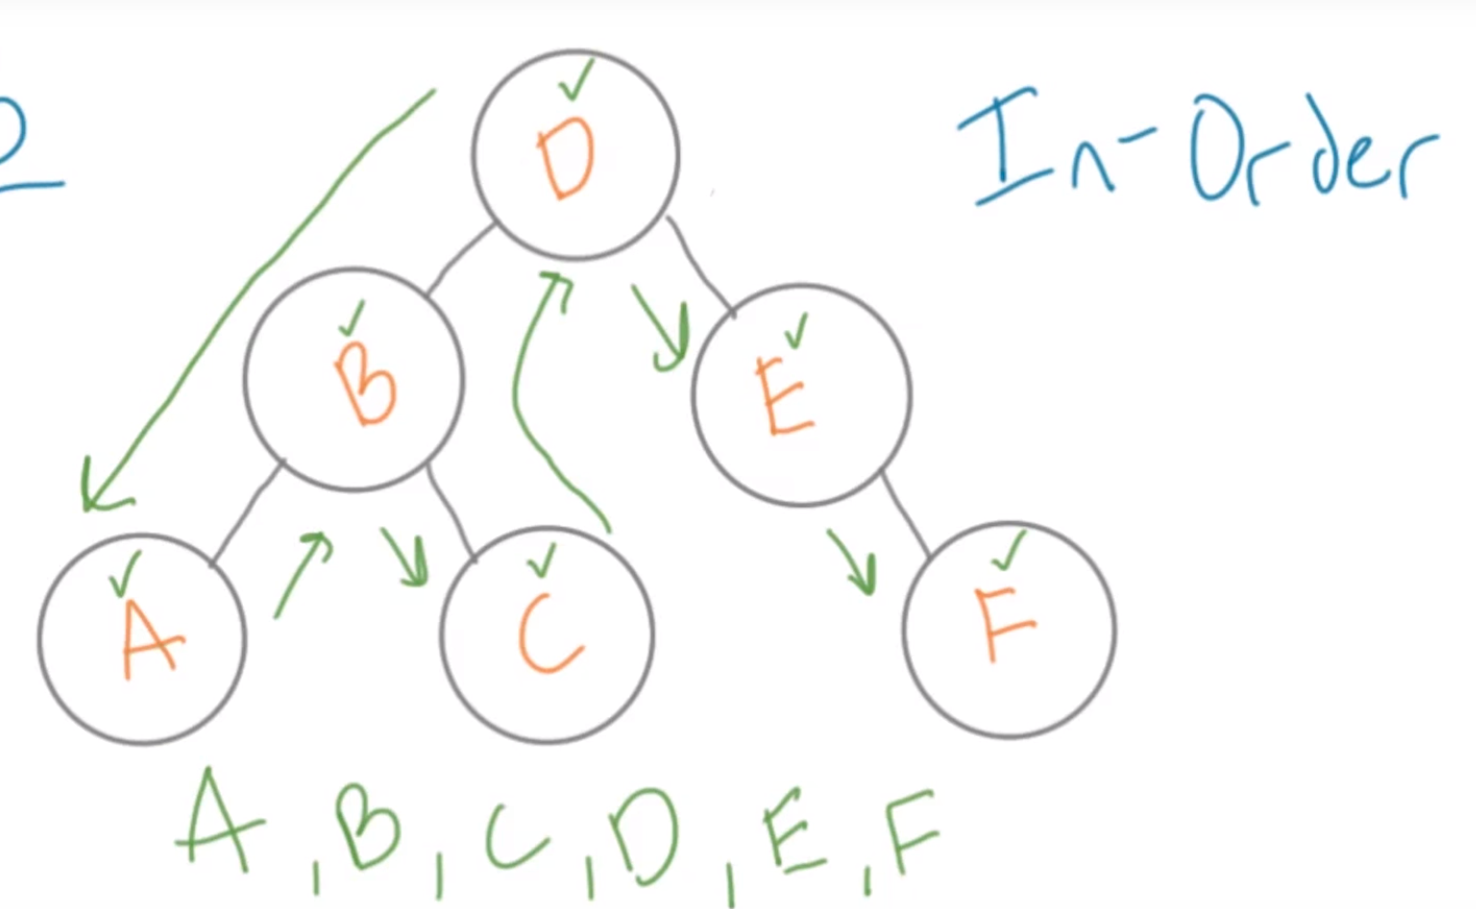 2
In-Order
D
B
E
A
C
F
A, B, C, D, E, F